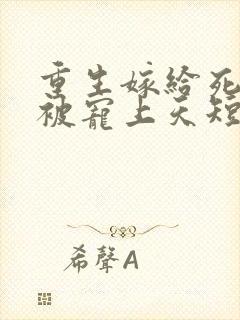 重生嫁给死
被宠上天短
希聲A